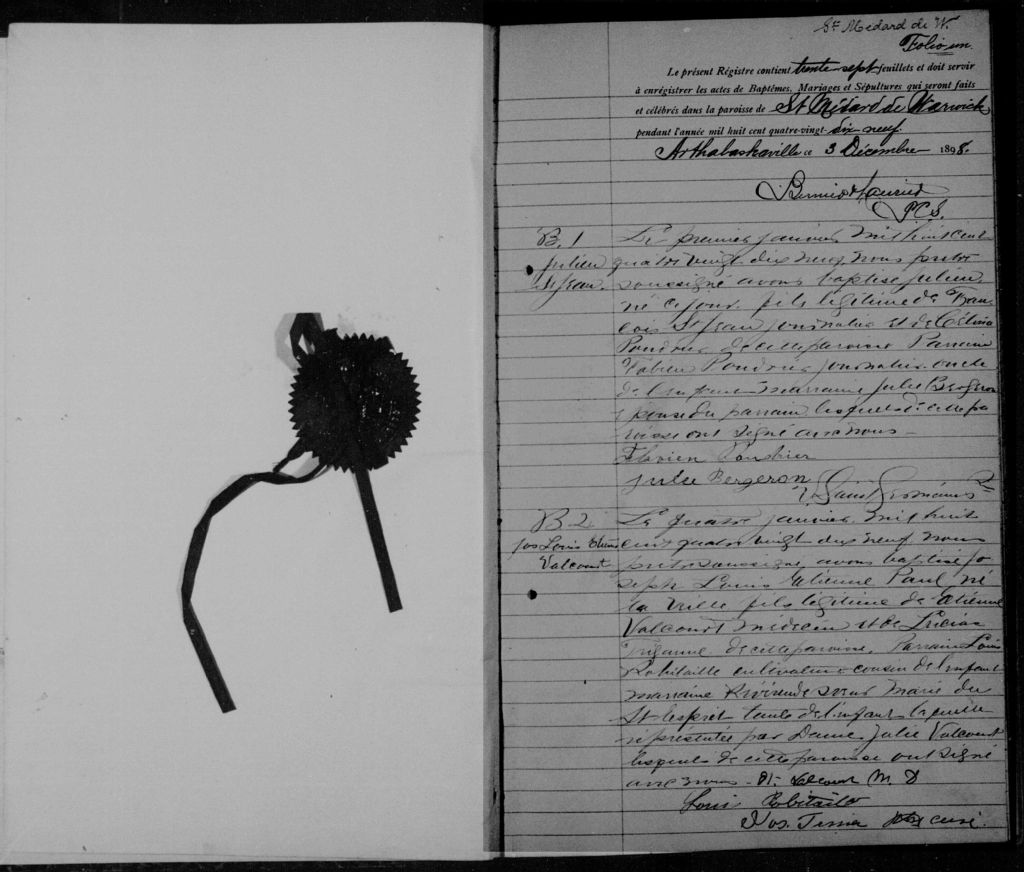 St Médard de W.
Folio un.
Le présent Régistre contient trente-sept feuillets et doit servir
à enrégistrer les actes de Baptêmes, Mariages et Sépultures qui seront faits
et célébrés dans la paroisse de St Médard de Warwick
pendant l'année mil huit cent quatre-vingt-dix-neuf.
Arthabaskaville ce 3 Décembre 1898.
P.C.S.
B. 1
Julien
St Jean.
Le premier janvier mil huit cent
quatre vingt dix neuf nous prêtre
soussigné avons baptisé Julien
né ce jour fils légitime de Fran
cois St Jean journalier et de Célina
de cette paroisse Parrain
journalier oncle
de l'enfant marraine Julie Bergeron
épouse du parrain lesquels de cette pa
roisse ont signé avec nous
Julie Bergeron
B 2
Jos Louis Etienne
Valcourt
Le quatre janvier mil huit
cent quatre vingt dix neuf nous
prêtre soussigné avons baptisé Jo
seph Louis Etienne Paul, né
la veille fils légitime de Etienne
Valcourt médecin et de
de cette paroisse. Parrain Louis
Robitaille cultivateur cousin de l'enfant
marraine Révérende soeur Marie du
St Esprit tante de l'enfant laquelle
représentée par Dame Julie Valcourt
lesquels de cette paroisse ont signé
avec nous - Et. Valcourt M. D
Louis Robitaille
curé.